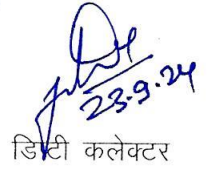 23.9.24
डिप्टी कलेक्टर